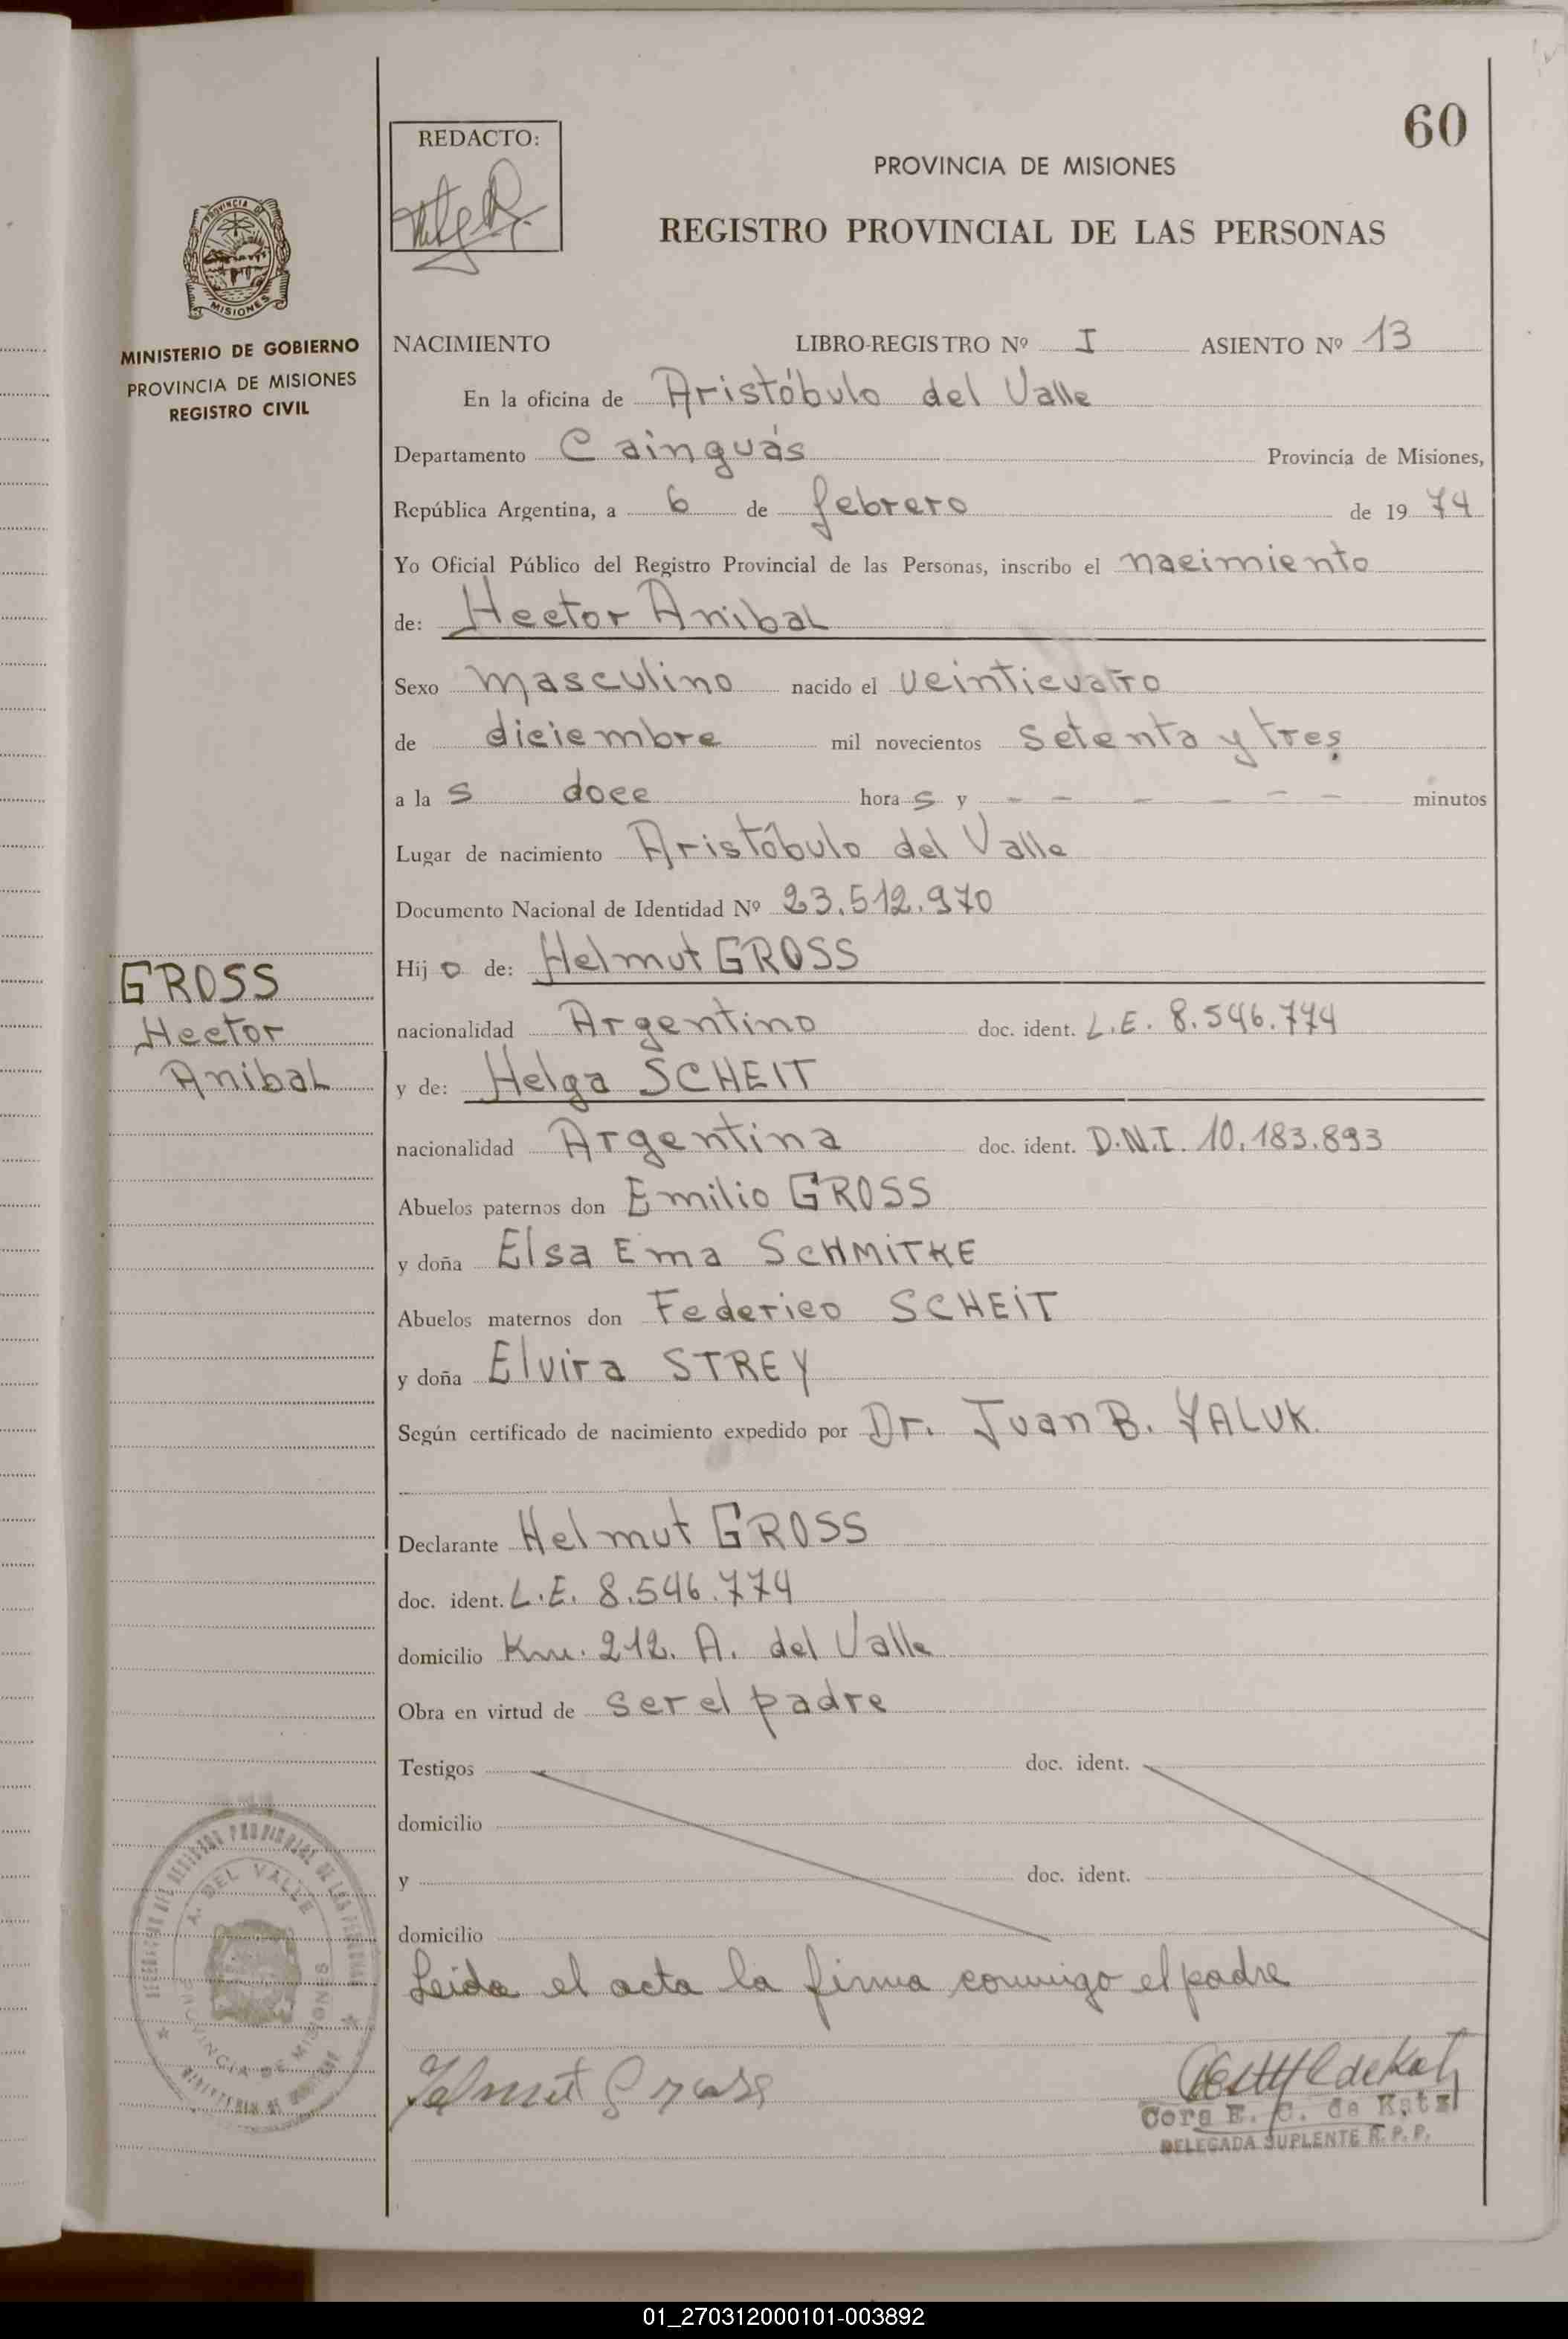 60
REDACTO:
PROVINCIA DE MISIONES
REGISTRO PROVINCIAL DE LAS PERSONAS
MISIONES
MINISTERIO DE GOBIERNO
PROVINCIA DE MISIONES
REGISTRO CIVIL
NACIMIENTO LIBRO-REGISTRO Nº I ASIENTO Nº 13
En la oficina de Aristóbulo del Valle
Departamento Cainguás Provincia de Misiones,
República Argentina, a 6 de febrero de 1974
Yo Oficial Público del Registro Provincial de las Personas, inscribo el nacimiento
de: Hector Anibal
Sexo masculino nacido el veinticuatro
de diciembre mil novecientos setenta y tres
a la s doce hora s y — — — — — — minutos
Lugar de nacimiento Aristóbulo del Valle
Documento Nacional de Identidad Nº 23.512.970
Hij o de: Helmut GROSS
GROSS
Hector
Anibal
nacionalidad Argentino doc. ident. L.E. 8.546.774
y de: Helga SCHEIT
nacionalidad Argentina doc. ident. D.N.I. 10.183.893
Abuelos paternos don Emilio GROSS
y doña Elsa Ema SCHMITKE
Abuelos maternos don Federico SCHEIT
y doña Elvira STREY
Según certificado de nacimiento expedido por Dr. Juan B. YALUK.
Declarante Helmut GROSS
doc. ident. L.E. 8.546.774
domicilio Km. 212. A. del Valle
Obra en virtud de ser el padre
Testigos doc. ident.
domicilio
y doc. ident.
domicilio
Leida el acta la firma conmigo el padre
A. DEL VALLE
PROVINCIA DE MISIONES
Helmut Gross
Cora E. C. de Katz
DELEGADA SUPLENTE R.P.P.
01_270312000101-003892